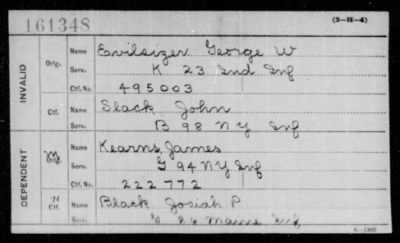 161348
(3-H-4)
INVALID
Orig. Name Evilsizer George W
Serv. K 23 Ind Inf
Ctf. No. 495003
Ctf. Name Slack John
Serv. B 98 N Y Inf
DEPENDENT
Orig. Name Kearns, James
Serv. G 94 N Y Inf
Ctf. No. 222772
Ctf. Name Black Josiah P
Serv. G 26 Maine Inf